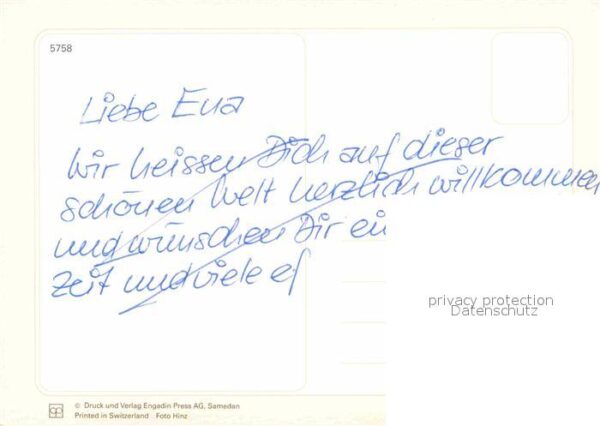 5758
Liebe Eva
Wir heissen Dich auf dieser
schönen Welt herzlich willkommen
und wünschen Dir ei
Zeit und viele
privacy protection
Datenschutz
© Druck und Verlag Engadin Press AG, Samedan
Printed in Switzerland Foto Hinz